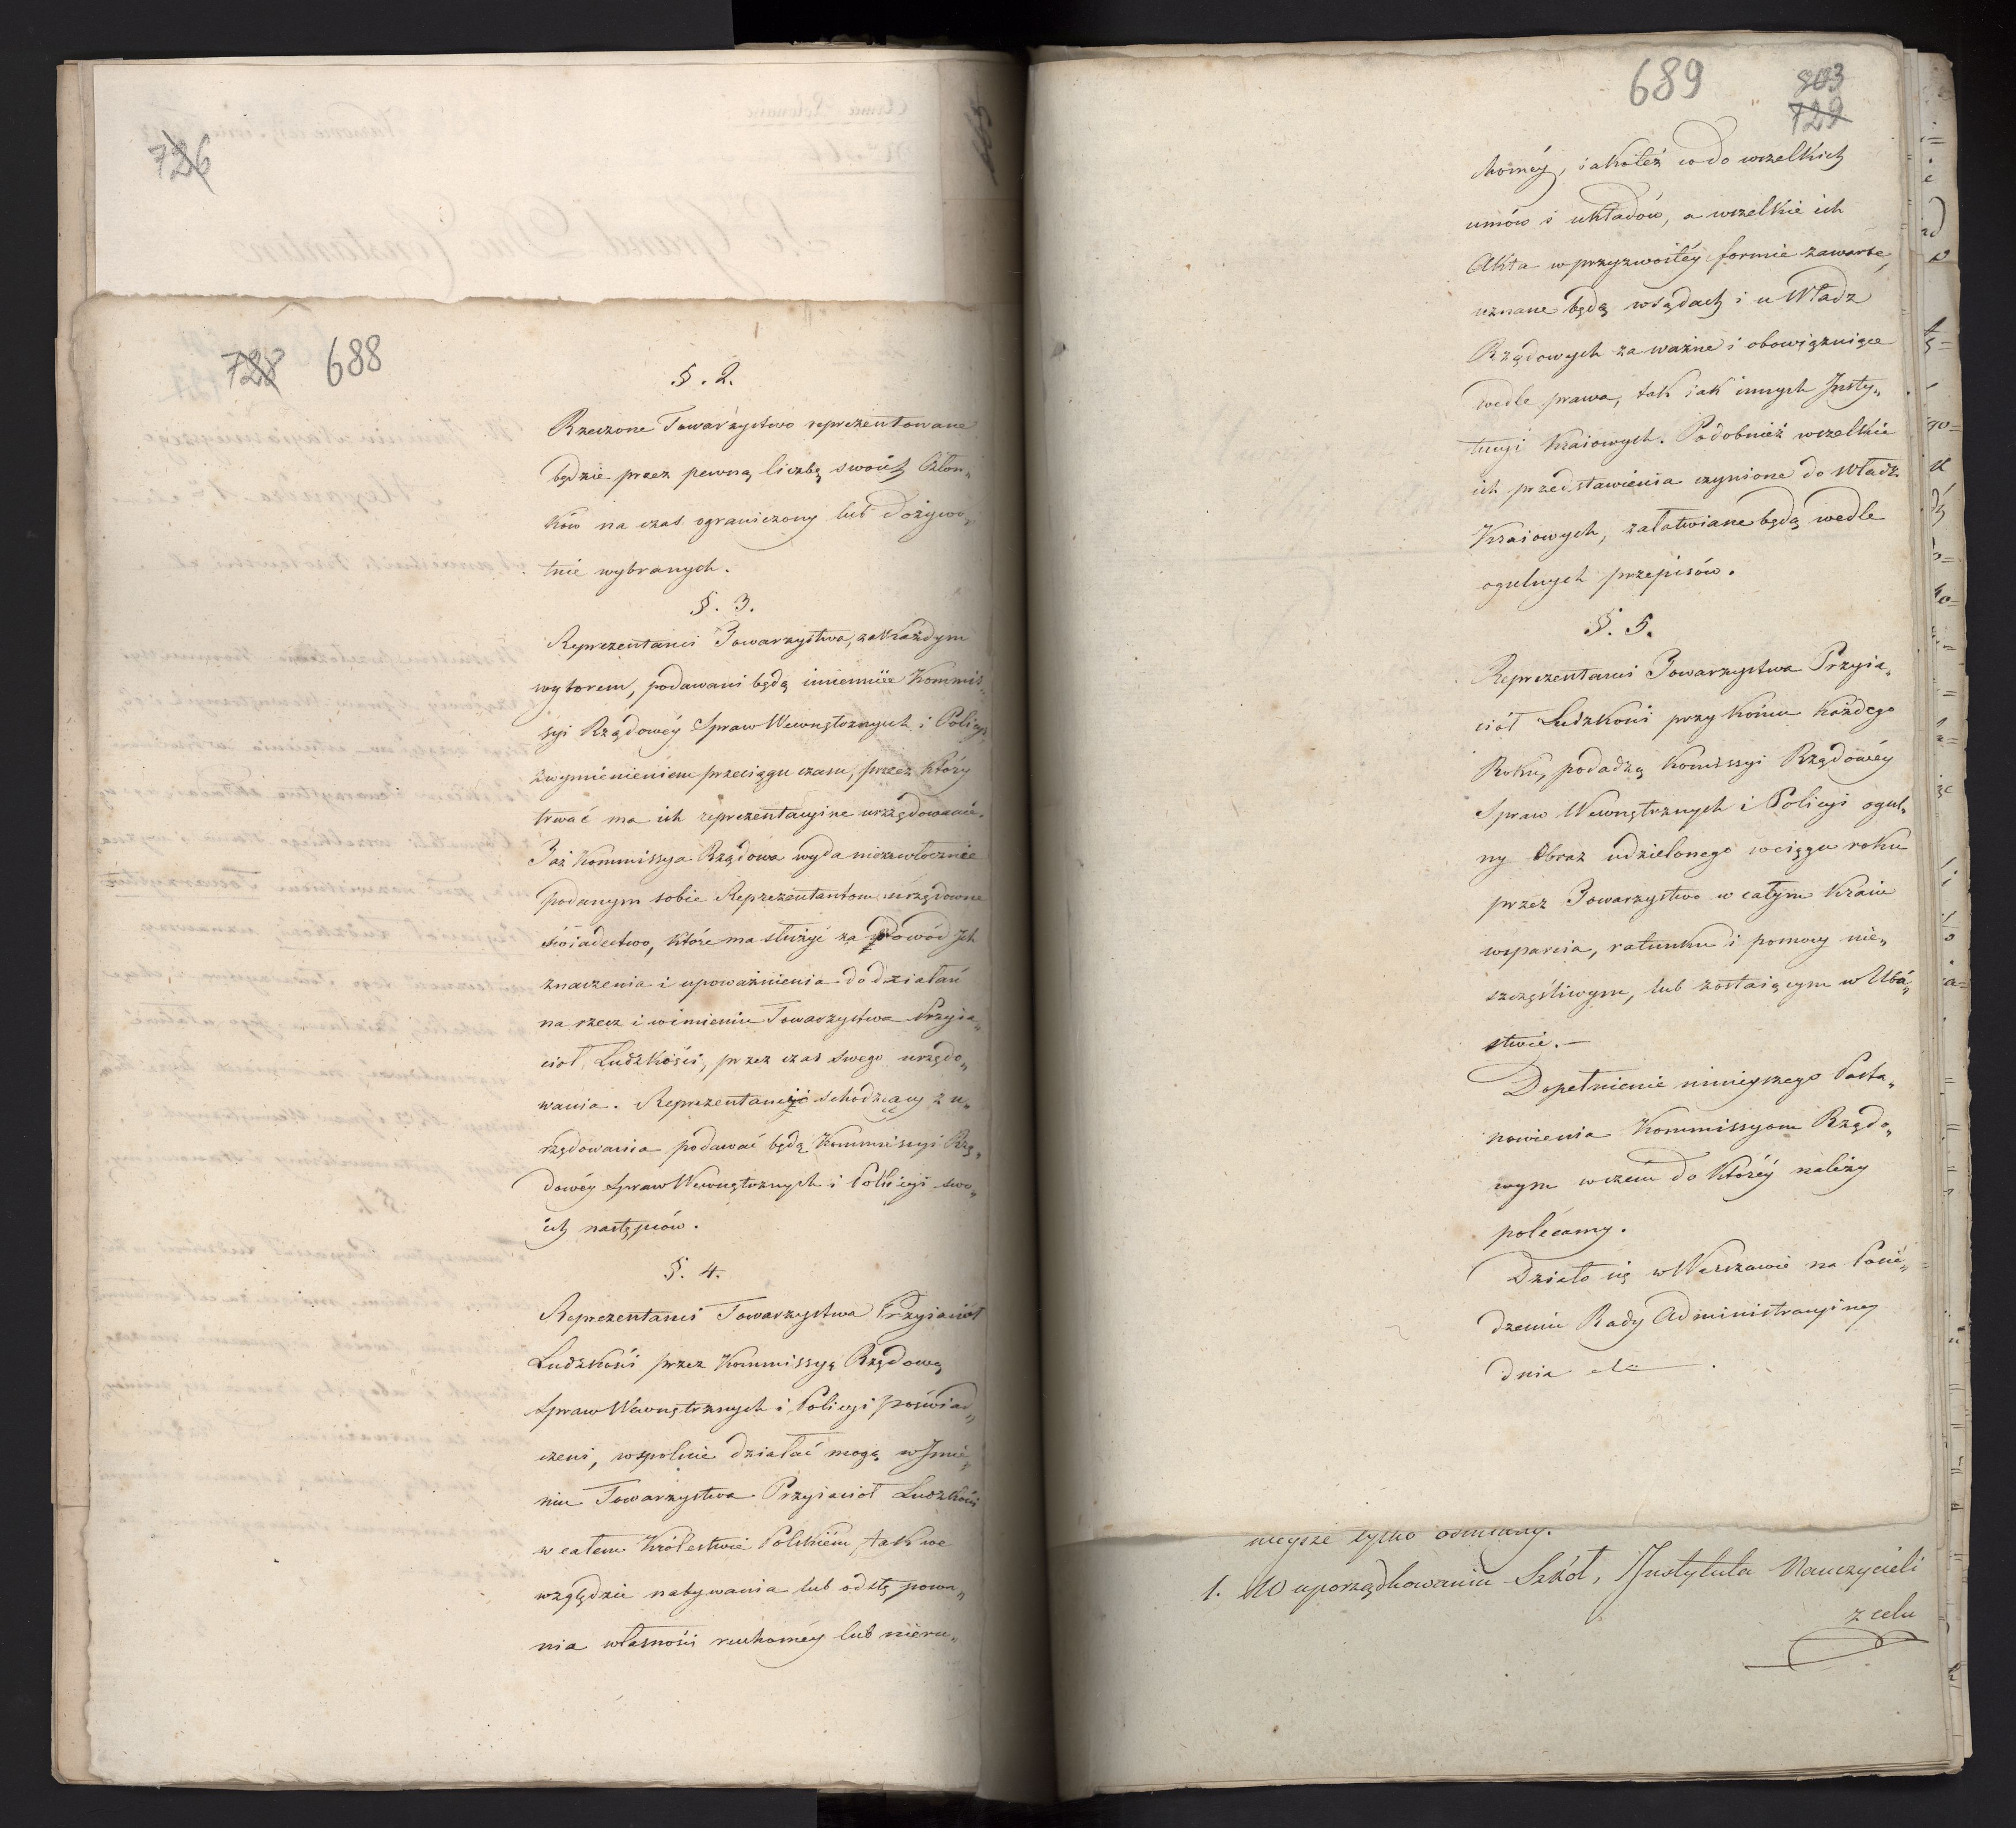 726
728 688
§. 2.
Rzeczone Towarzystwo reprezentowane
będzie przez pewną liczbę swoich Człon„
ków na czas ograniczony lub dożywo„
tnie wybranych.
§. 3.
Reprezentanci Towarzystwa, za każdym
wyborem, podawani będą imiennie Kommis„
syi Rządowéy Spraw Wewnętrznych i Policyi
z wymienieniem przeciągu czasu, przez który
trwać ma ich reprezentacyine urzędowanie.
Taż Kommissya Rządowa wyda niezwłocznie
podanym sobie Reprezentantom urzędowne
świadectwo, które ma służyć za dowód Ich
znaczenia i upoważnienia do działań
na rzecz i w imieniu Towarzystwa Przyia„
ciół Ludzkości, przez czas swego urzędo„
wania. Reprezentanci schodzący z u„
rzędowania podawać będą Kommissyi Rzą„
dowéy Spraw Wewnętrznych i Policyi swo„
ich następców.
§. 4.
Reprezentanci Towarzystwa Przyiaciół
Ludzkości przez Kommissyą Rządową
Spraw Wewnętrznych i Policyi poświad„
czeni, wspolnie działać mogą w Imie„
niu Towarzystwa Przyiaciół Ludzkości
w całem Królestwie Polskiém, tak we
względzie nabywania lub odstępowa„
nia własności ruchoméy lub nieru„
689 803
729
choméy, iakoteż co do wszelkich
umów i układów, a wszelkie ich
Akta w przyzwoitéy formie zawarte,
uznane będą w sądach i u Władz
Rządowych za ważne i obowiązuiące
wedle prawa, tak iak innych Insty„
tucyi Kraiowych. Podobnież wszelkie
ich przedstawienia czynione do Władz
Kraiowych, załatwiane będą wedle
ogulnych przepisów.
§. 5.
Reprezentanci Towarzystwa Przyia„
ciół Ludzkości przy końcu każdego
Roku, podadzą Komissyi Rządowéy
Spraw Wewnętrznych i Policyi ogul„
ny obraz udzielonego w ciągu roku
przez Towarzystwo w całym Kraiu
wsparcia, ratunku i pomocy nie„
szczęśliwym, lub zostaiącym w Ubó„
stwie.—
Dopełnienie ninieyszego Posta„
nowienia Kommissyom Rządo„
wym w czém do któréy należy
polecamy.
Działo się w Warszawie na Posie„
dzeniu Rady Administracyiney
dnia etc
tylko odmiany.
1. W uporządkowaniu Szkół, Instytuta Nauczycieli
z celu